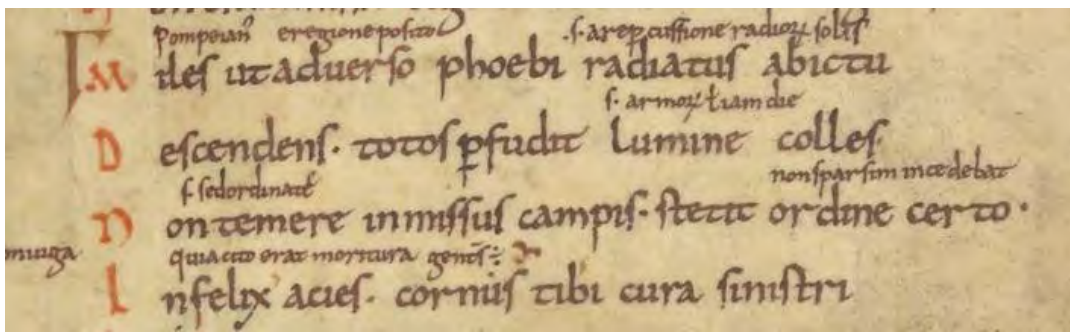 Pompeian⁹ eregioneposito .s. arep̱cussione radioꝝ solis
Miles ut adverso phoebi radiatus abictu
.s. armoꝝ ł iam die
Descendens. totos ꝑfudit lumine colles.
s. sed ordinate non sparsim incedebat
Non temere inmissus campis. stetit ordine certo.
quia cito erat moritura gens
Infelix acies. cornus tibi cura sinistri